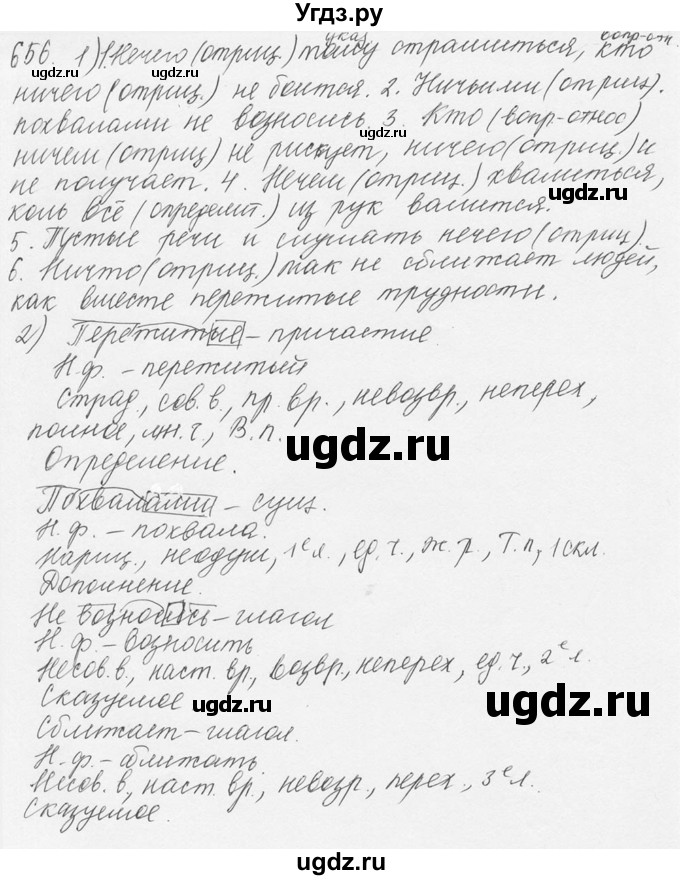 Угдз.ру
указ. вопр-отн.
656. 1) 1. Нечего (отриц.) тому страшиться, кто
ничего (отриц.) не боится. 2. Ничьими (отриц).
похвалами не возносись 3. Кто (вопр-относ)
ничем (отриц) не рискует, ничего (отриц.) и
не получает. 4. Нечем (отриц.) хвалиться,
коль всё (определит.) из рук валится.
5. Пустые речи и слушать нечего (отриц).
6. Ничто (отриц.) так не сближает людей,
как вместе пережитые трудности.
2) Пережитые – причастие
Н.ф. – пережитый
Страд., сов. в., пр. вр., невозвр., неперех,
полное, мн. ч., В.п.
Определение.
Похвалами – сущ.
Н. ф. – похвала.
Нариц., неодуш, 1е л., ед. ч., ж. р., Т.п, 1 скл.
Дополнение.
Не возносись – глагол
Н. ф – возносить
Несов. в., наст. вр, возвр, неперех, ед. ч., 2е л.
Сказуемое
Сближает – глагол.
Н. ф – сближать
Несов. в, наст. вр., невозр., перех., 3е л.
Сказуемое.
ugdz.ru
ugdz.ru
ugdz.ru
ugdz.ru
ugdz.ru
ugdz.ru
ugdz.ru
ugdz.ru
ugdz.ru
ugdz.ru